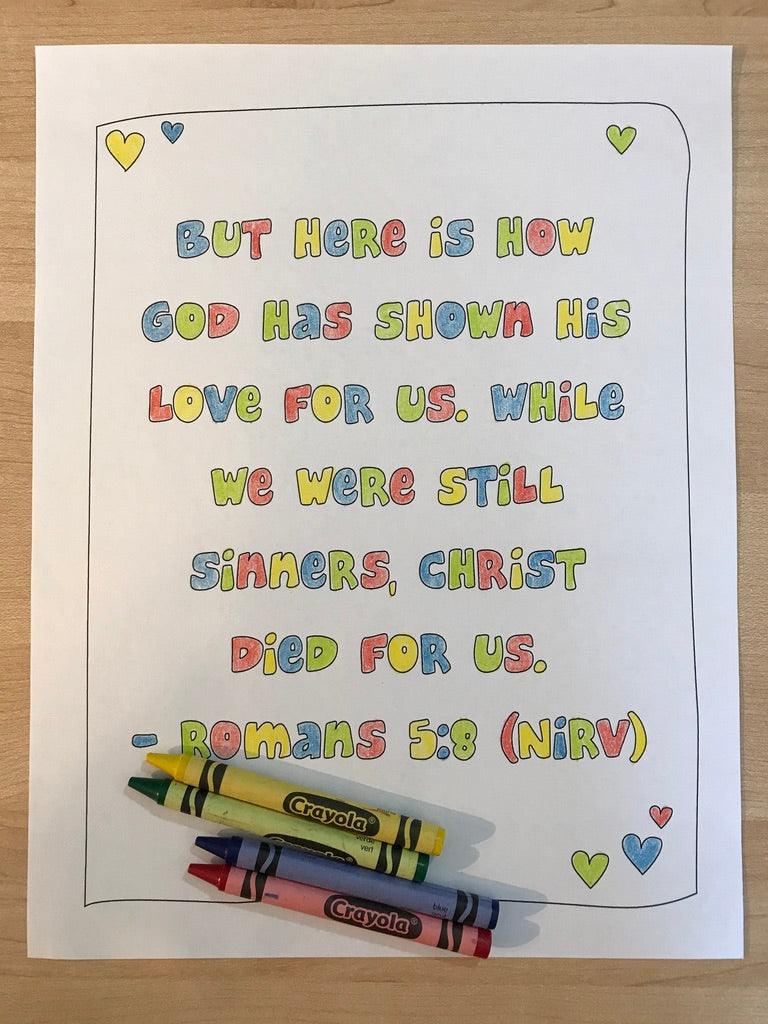 BUT HERE iS HOW
GOD Has SHOWn HiS
LOVe FOR US. WHiLe
We WeRe STiLL
Sinners, CHRiST
DieD FOR US.
- Romans 5:8 (NiRV)
Crayola®
verde
vert
Crayola
blue
Crayola®